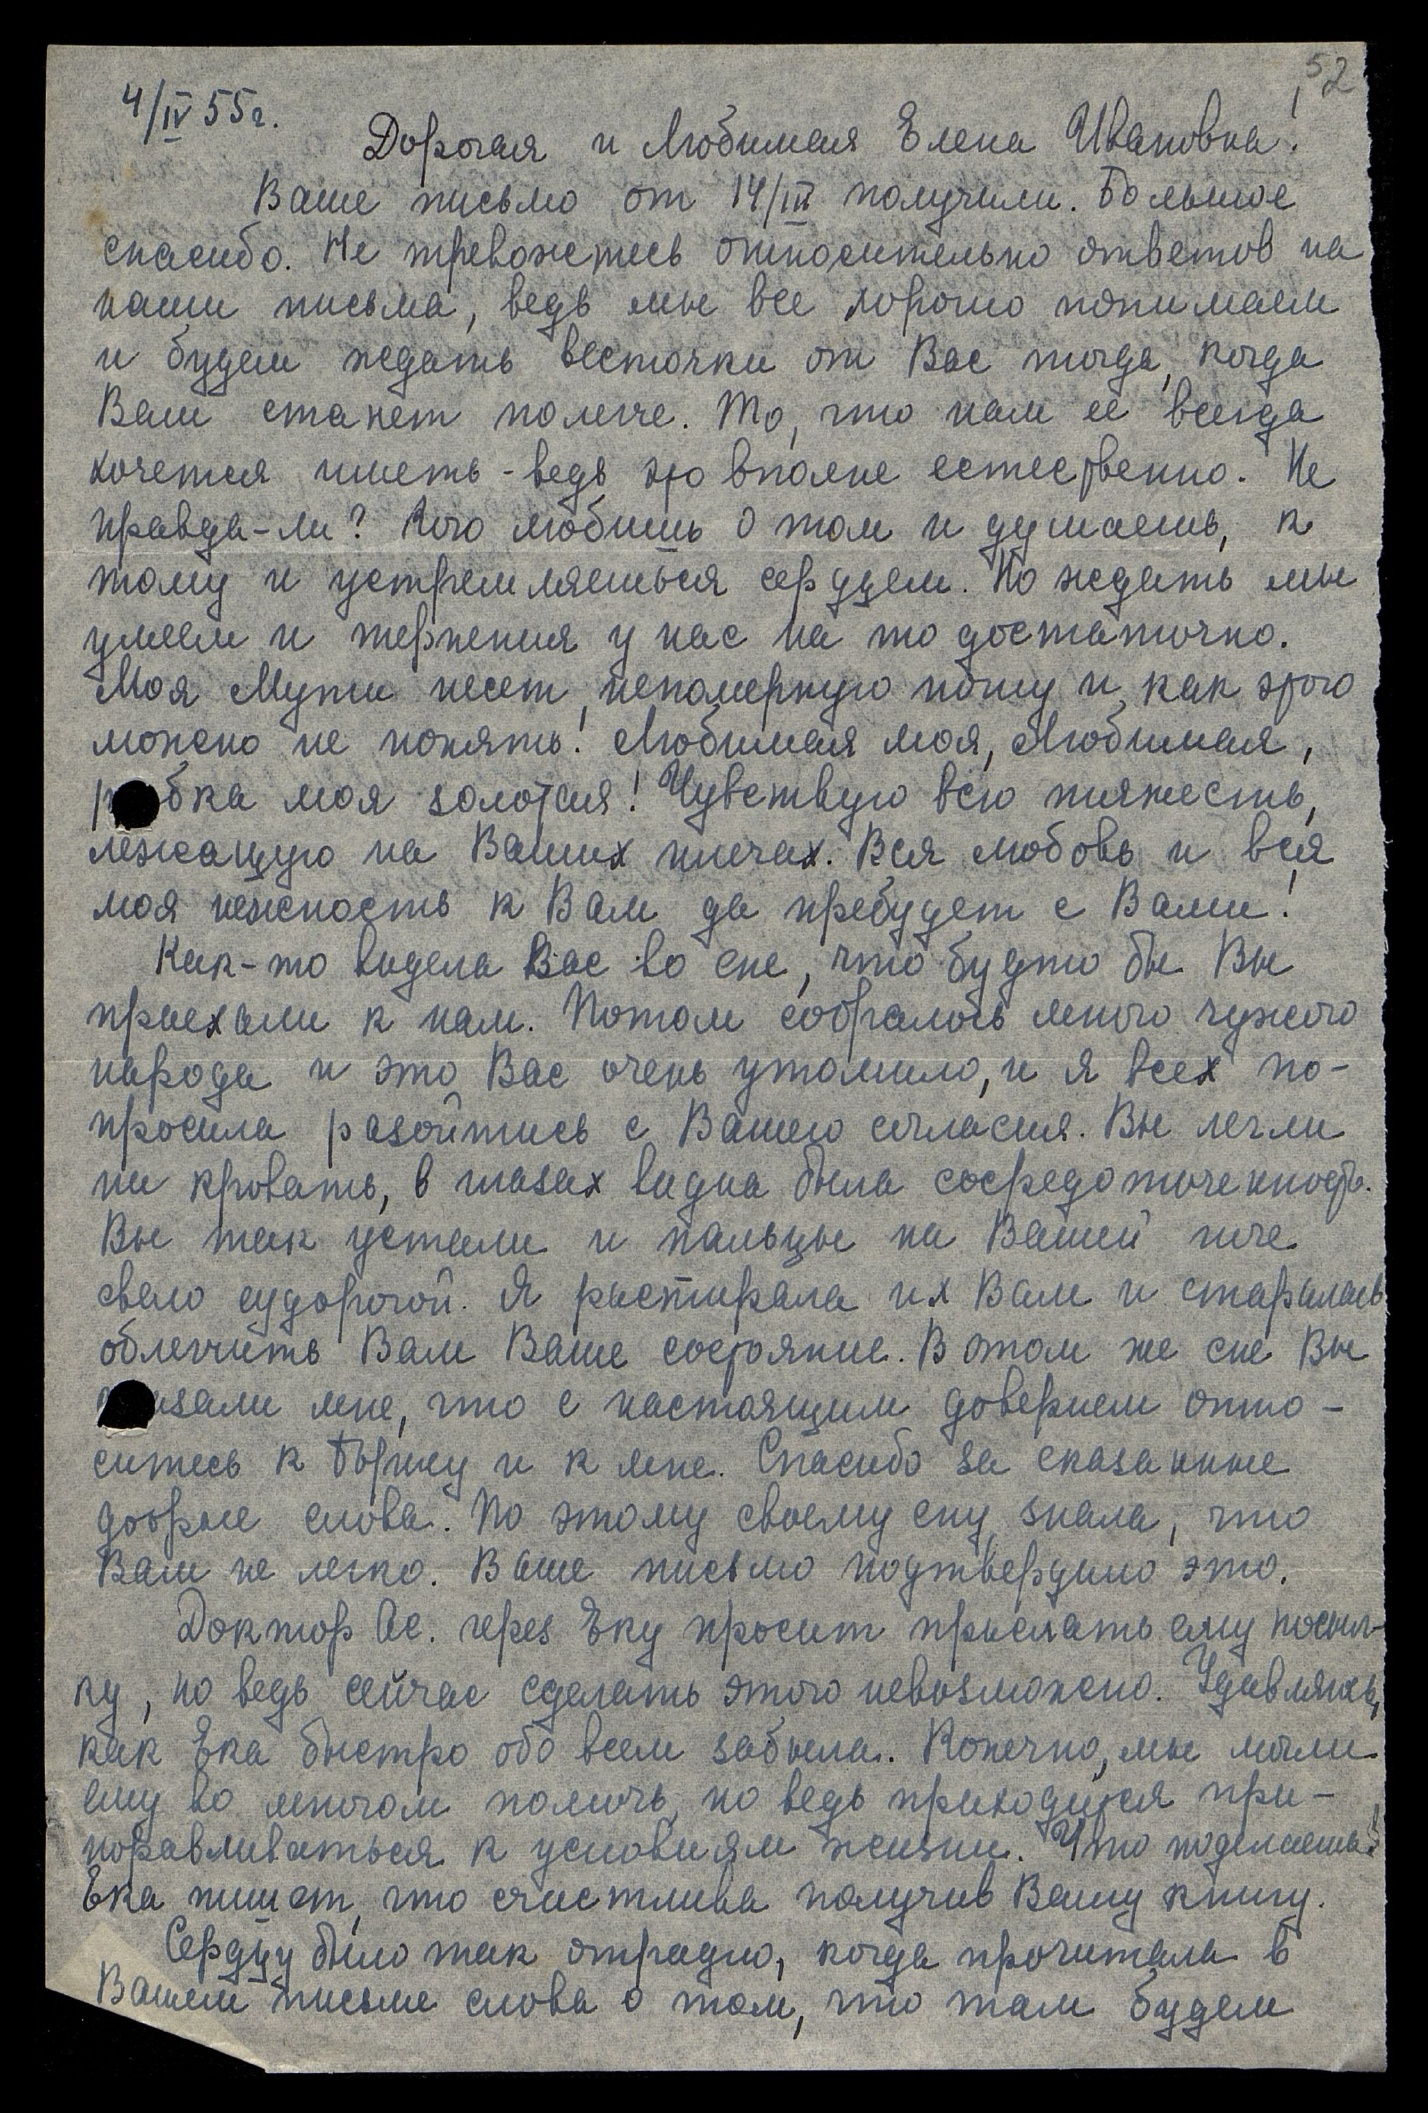 52
4/IV 55г.
Дорогая и Любимая Елена Ивановна!
Ваше письмо от 14/III получили. Большое
спасибо. Не тревожтесь относительно ответов на
наши письма, ведь мы все хорошо понимаем
и будем ждать весточки от Вас тогда, когда
Вам станет полегче. То, что нам ее всегда
хочется иметь - ведь это вполне естественно. Не
правда-ли? Кого любишь о том и думаешь, к
тому и устремляешься сердцем. Но ждать мы
умеем и терпения у нас на то достаточно.
Моя Мути несет непомерную ношу и, как этого
можно не понять! Любимая моя, Любимая,
бка моя золотая! Чувствую всю тяжесть,
лежащую на Ваших плечах. Вся любовь и вся
моя нежность к Вам да пребудет с Вами!
Как-то видела Вас во сне, что будто бы Вы
приехали к нам. Потом собралось много чужого
народа и это Вас очень утомило, и я всех по-
просила разойтись с Вашего согласия. Вы легли
на кровать, в глазах видна была сосредоточенность.
Вы так устали и пальцы на Вашей ноге
свело судорогой. Я растирала их Вам и старалась
облегчить Вам Ваше состояние. В этом же сне Вы
зали мне, что с настоящим доверием отно-
ситесь к и к мне. Спасибо за сказанные
добрые слова. По этому своему сну знала, что
Вам не легко. Ваше письмо подтвердило это.
Доктор Ас. через Еку просит прислать ему посыл-
ку, но ведь сейчас сделать этого невозможно. Удивляюсь,
как Ека быстро обо всем забыла. Конечно, мы могли
ему во многом помочь, но ведь приходится при-
норавливаться к условиям жизни. Что поделаешь!
Ека пишет, что счастлива получив Вашу книгу.
Сердцу было так отрадно, когда прочитала в
Вашем письме слова о том, что там будем